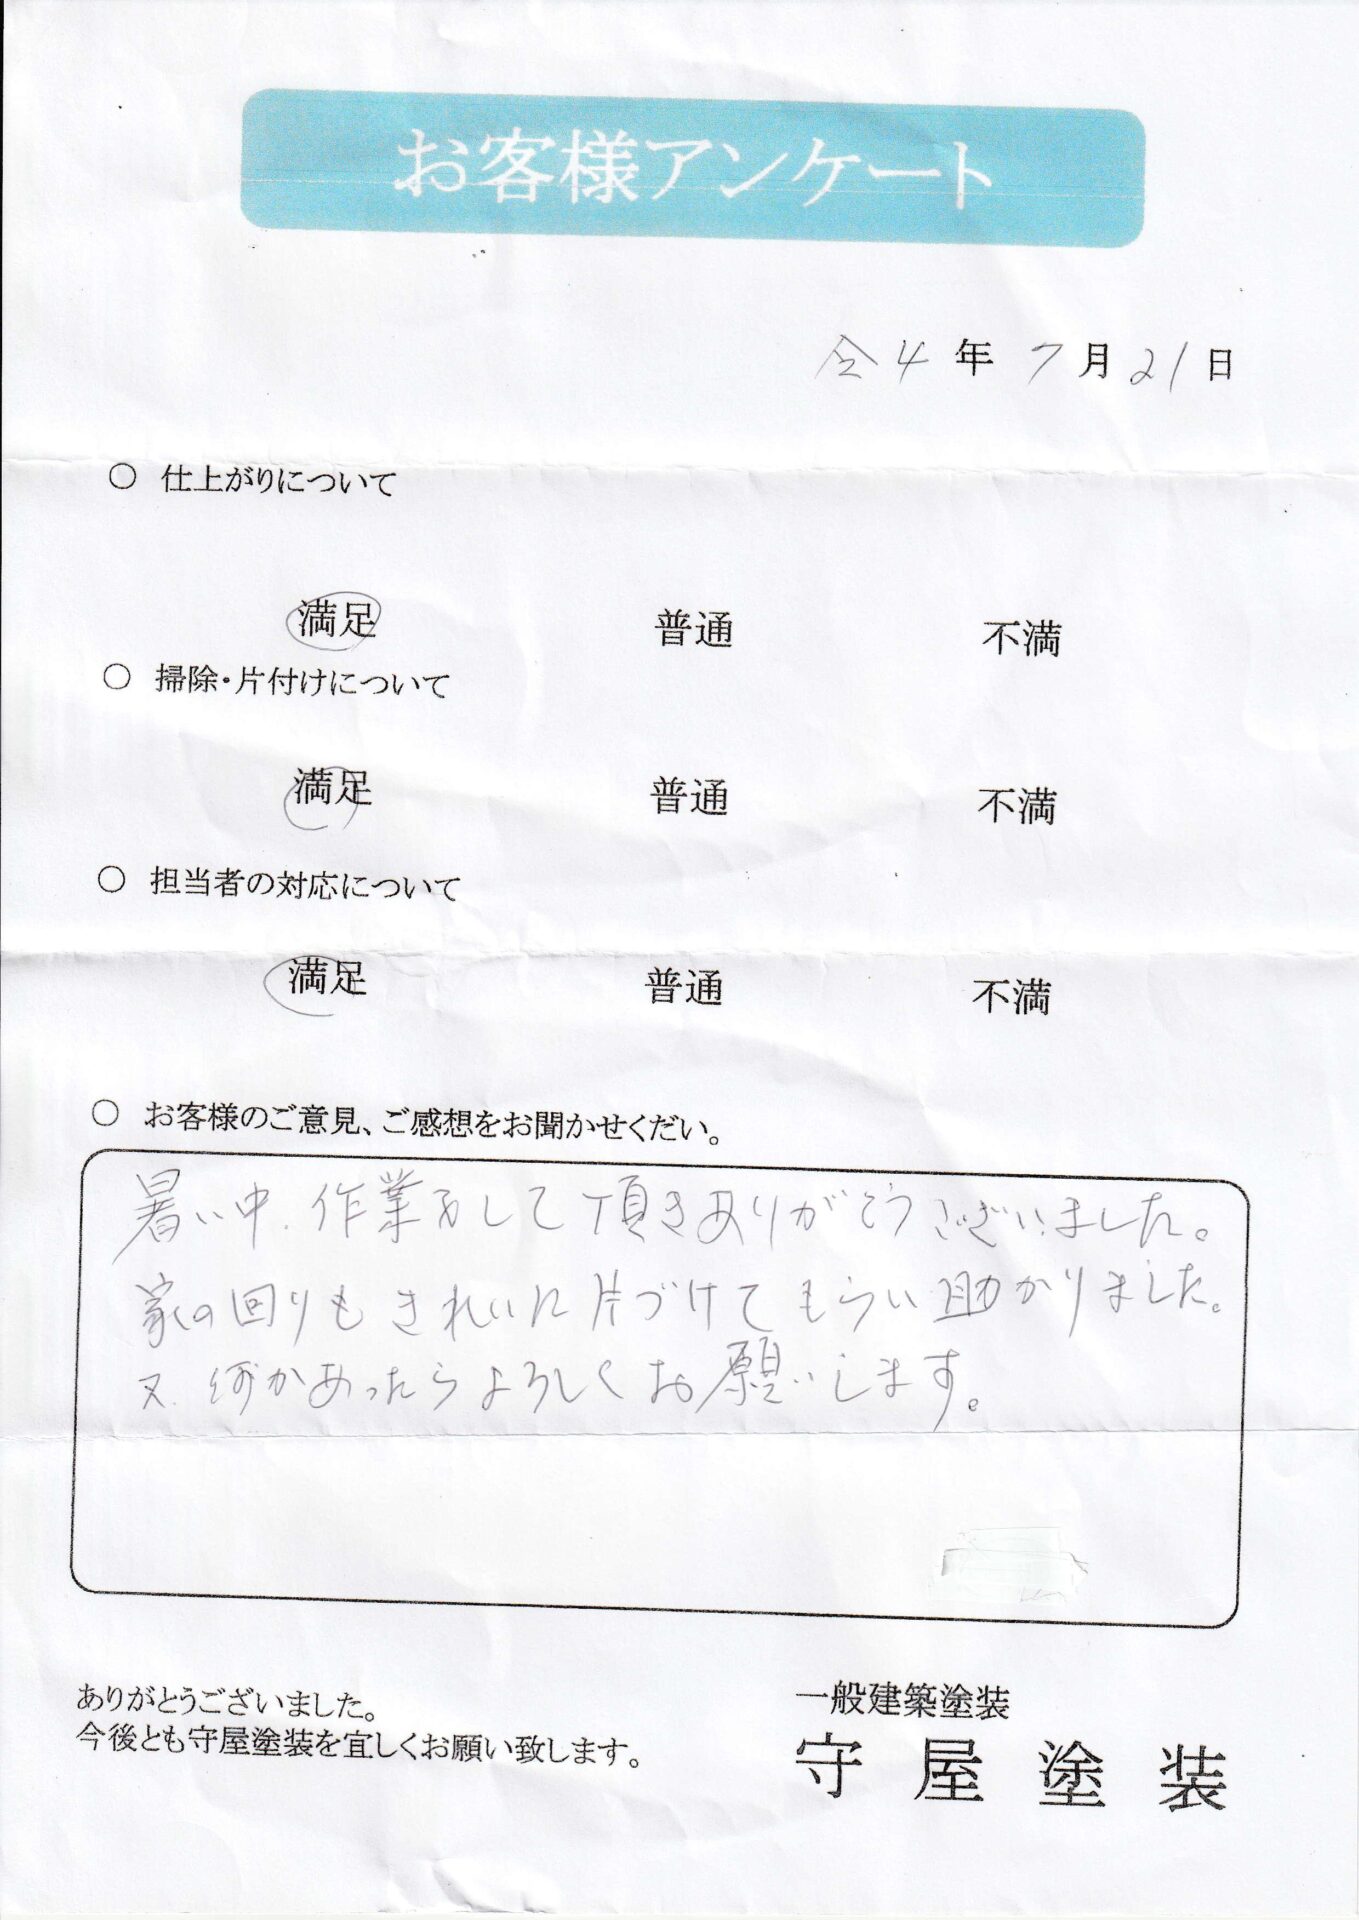 お客様アンケート
令4年7月21日
○ 仕上がりについて
満足 普通 不満
○ 掃除・片付けについて
満足 普通 不満
○ 担当者の対応について
満足 普通 不満
○ お客様のご意見、ご感想をお聞かせくだい。
暑い中、作業をして頂きありがとうございました。
家の回りもきれいに片づけてもらい助かりました。
又、何かあったらよろしくお願いします。
ありがとうございました。
今後とも守屋塗装を宜しくお願い致します。
一般建築塗装
守屋塗装